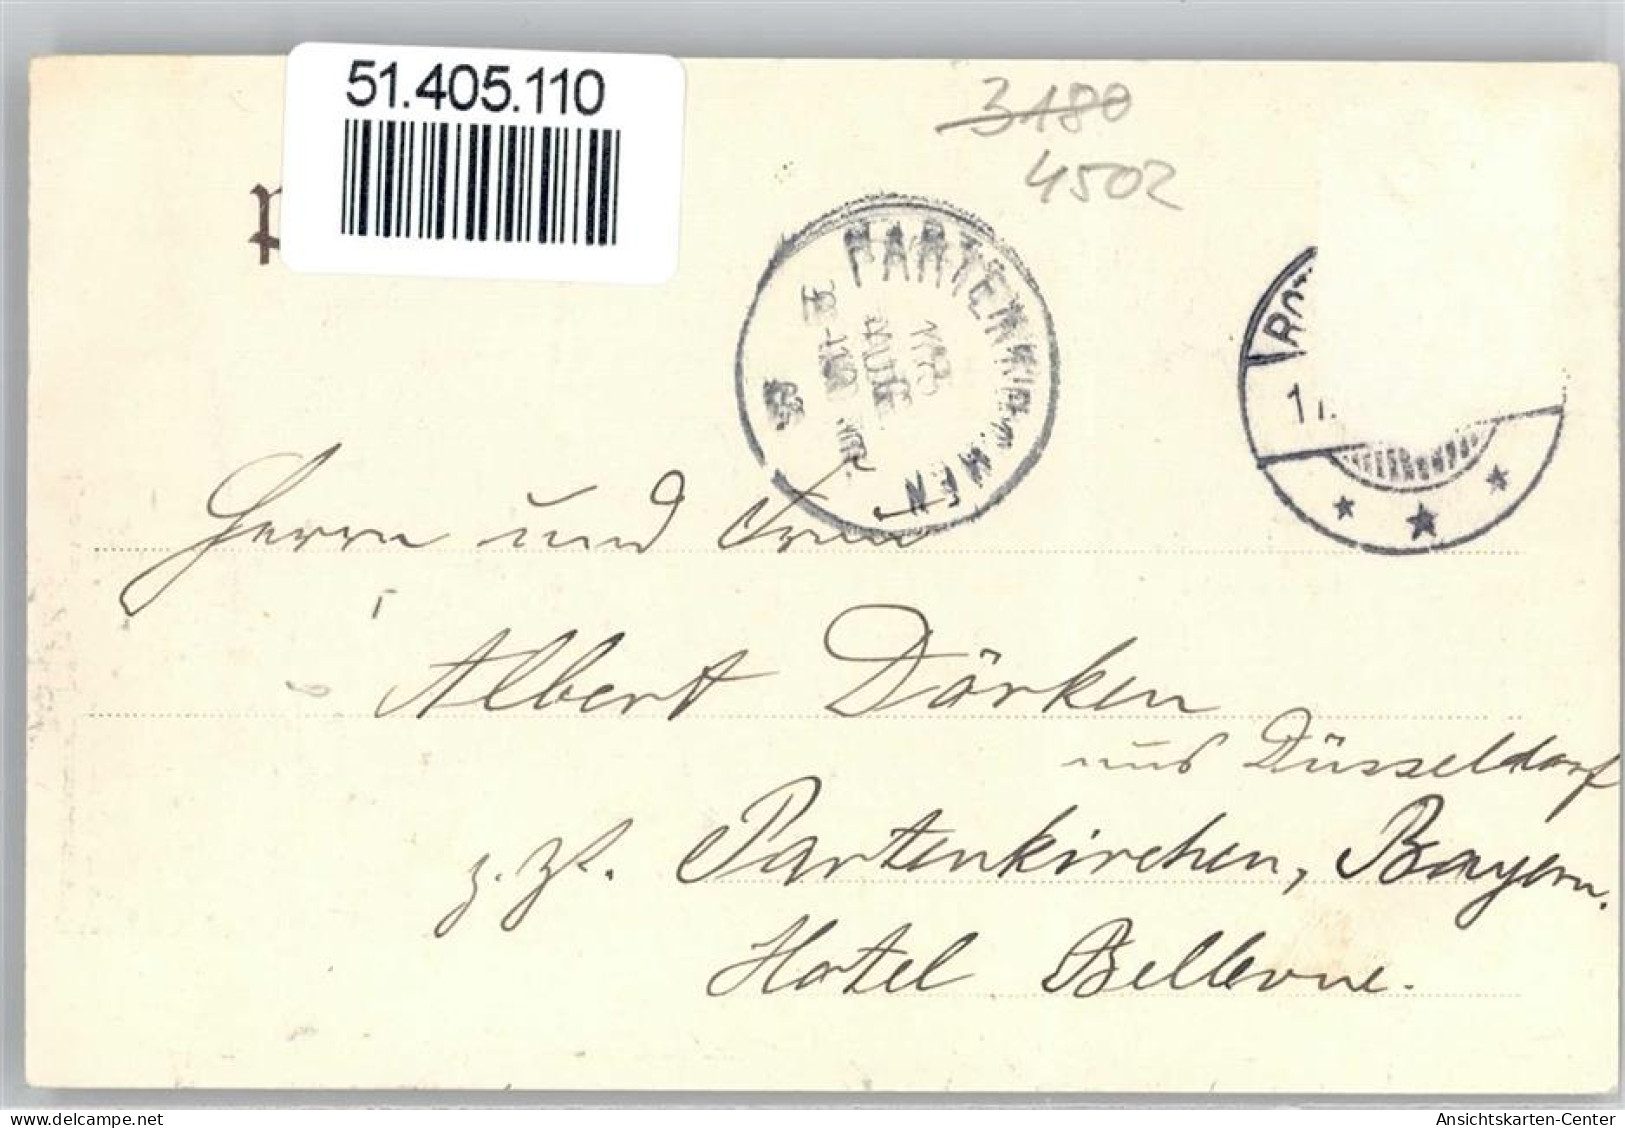 51.405.110
3180
4502
PARTENKIRCHEN
AUG
ROT
17.
Herrn und Frau
Albert Dörken
aus Düsseldorf
z. Zt. Partenkirchen, Bayern.
Hotel Bellevue.
delcampe.net
Ansichtskarten-Center